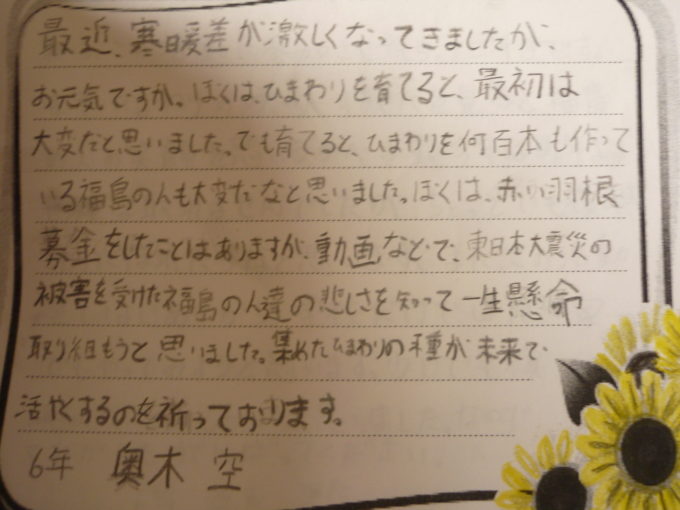 最近、寒暖差が激しくなってきましたが、
お元気ですか。ぼくは、ひまわりを育てると、最初は
大変だと思いました。でも育てると、ひまわりを何百本も作って
いる福島の人も大変だなと思いました。ぼくは、赤い羽根
募金をしたことはありますが、動画などで、東日本大震災の
被害を受けた福島の人達の悲しさを知って一生懸命
取り組もうと思いました。集めたひまわりの種が未来で
活やくするのを祈っております。
6年 奥木 空